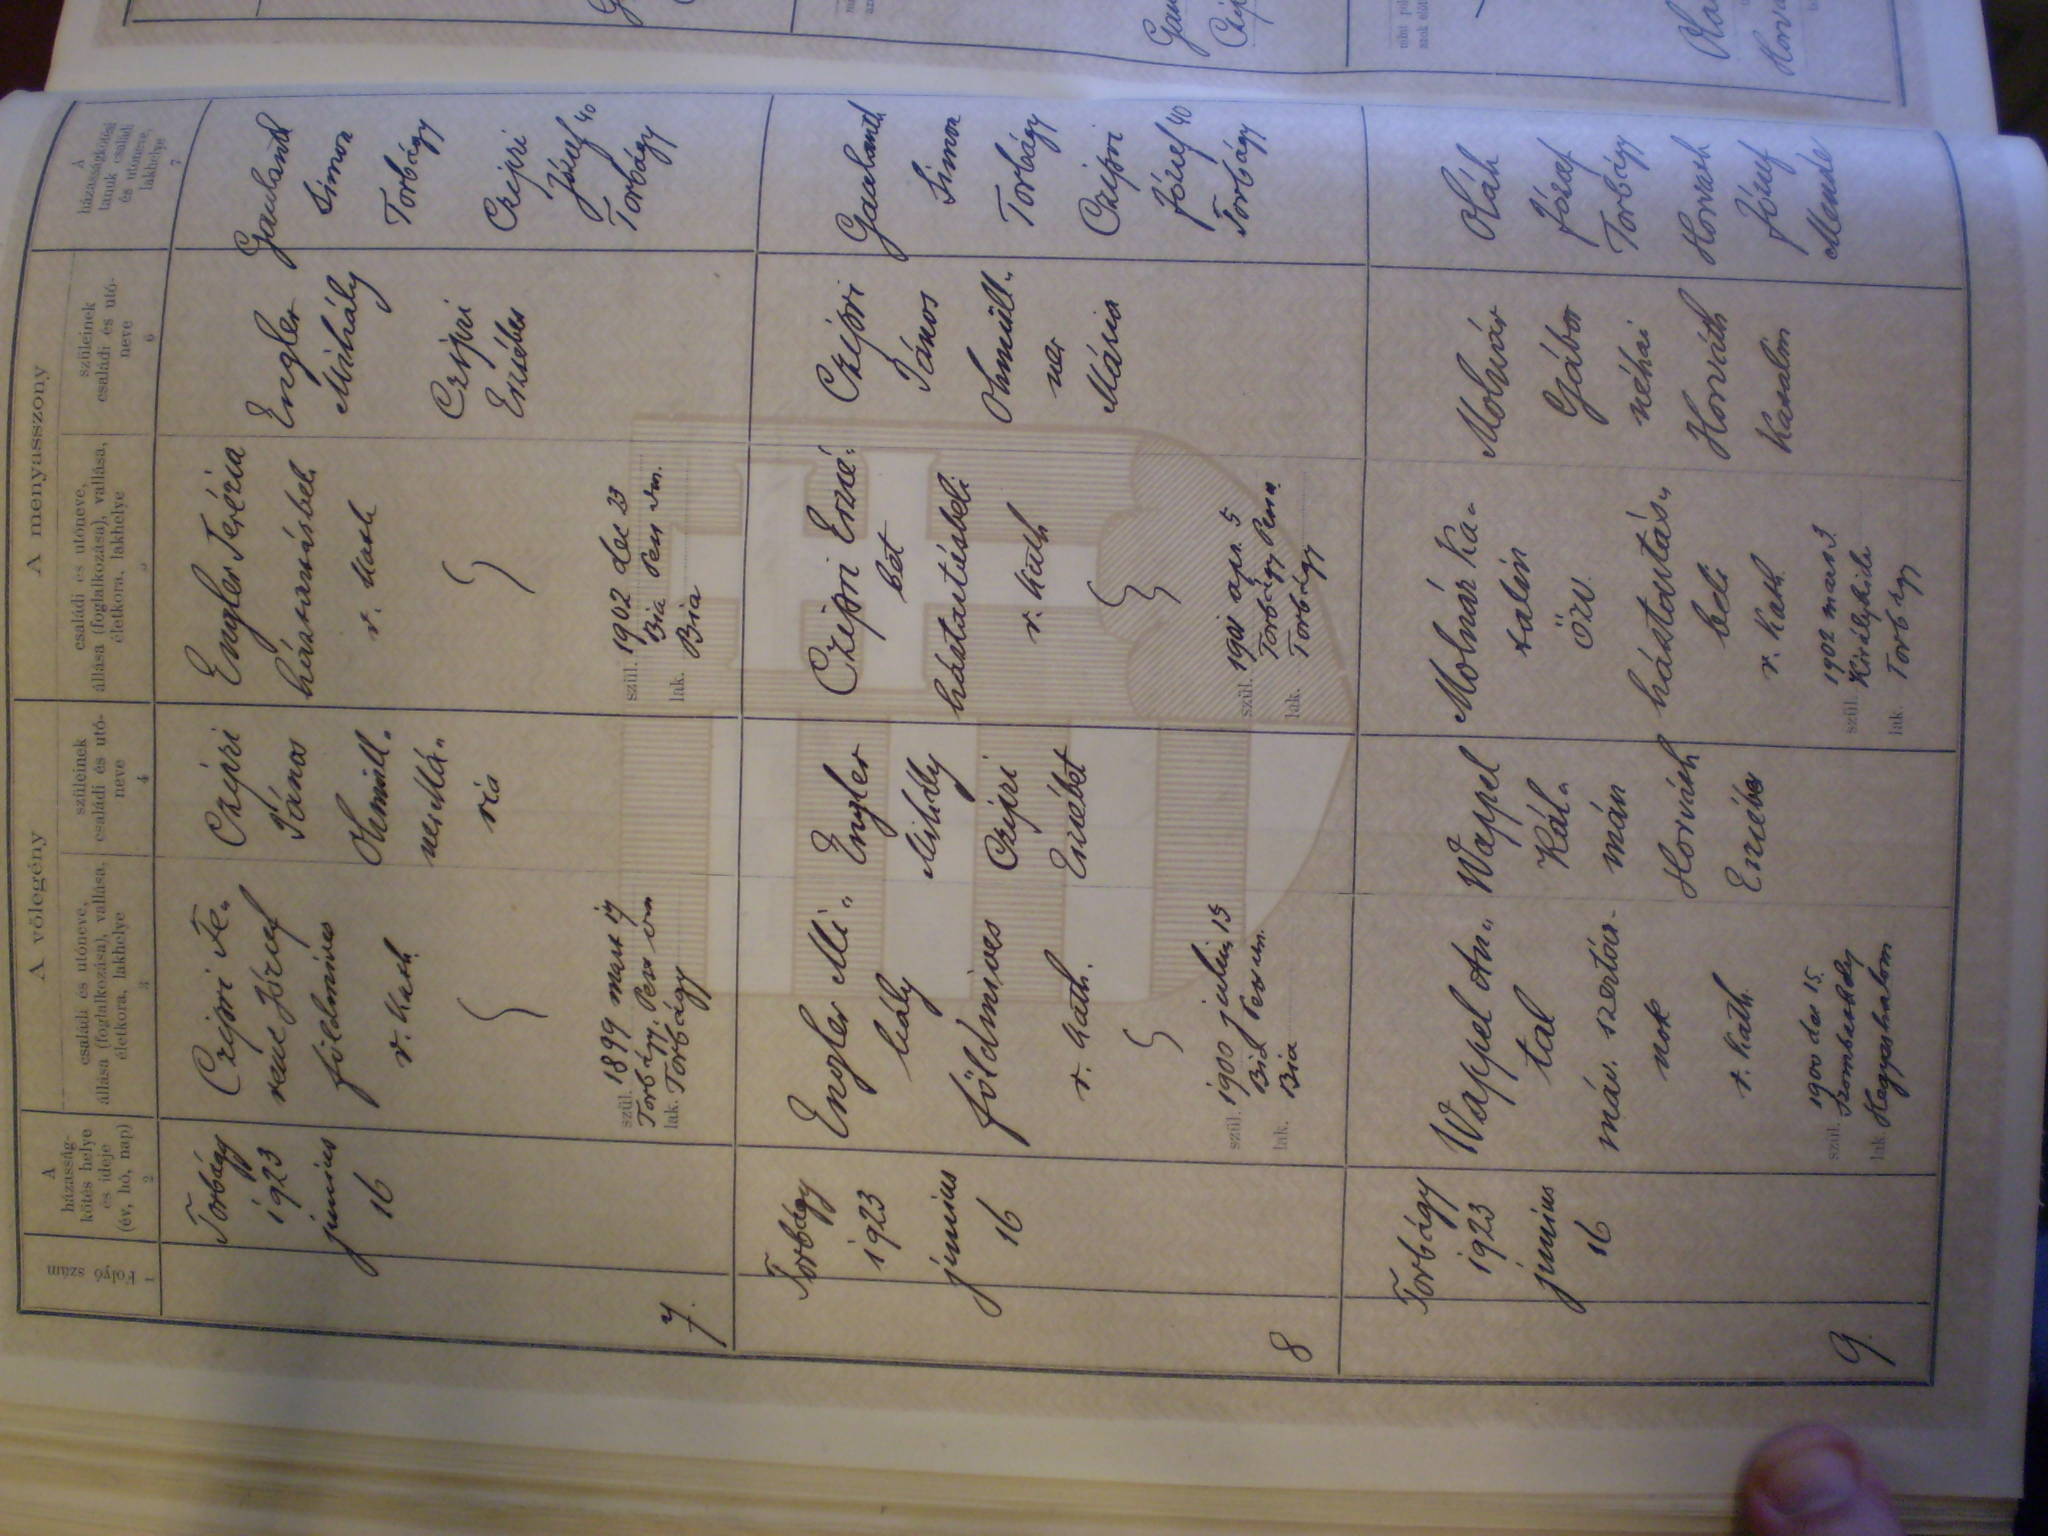 A vőlegény
A menyusszony
Folyó szám
1
A
házasság-
kötés helye
és ideje
(év, hó, nap)
2
családi és utóneve,
állása (foglalkozása), vallása,
életkora, lakhelye
3
szüleinek
családi és utó-
neve
4
családi és utóneve,
állása (foglalkozása), vallása,
életkora, lakhelye
5
szüleinek
családi és utó-
neve
6
A
házasságkötési
tanuk családi
és utóneve,
lakhelye
7
7.
Torbágy
1923
junius
16
Czipri Fe„
renc József
földmíves
r. kath.
szül. 1899 márc 17
Torbágy. Pest vm
lak. Torbágy
Czipri
János
Ohmüll„
ner Má„
ria
Engler Terézia
háztartásbeli
r. kath
szül. 1902 dec 23
Bia Pest vm.
lak. Bia
Engler
Mihály
Czipri
Erzsébet
Simon
Torbágy
Czipri
József 40
Torbágy
8
Torbágy
1923
junius
16
Engler Mi„
hály
földmives
r. kath.
szül. 1900 julius 15
Bia Pest vm.
lak. Bia
Engler
Mihály
Czipri
Erzsébet
Czipri Erzsé„
bet
háztartásbeli
r. kath
szül. 1901 apr. 5
Torbágy Pest
lak. Torbágy
Czipri
János
Ohmüll„
ner
Mária
Simon
Torbágy
Czipri
József 40
Torbágy
9.
Torbágy
1923
junius
16
Wappel An„
tal
máv. szertár-
nok
r. kath
szül. 1900 dec 15.
Szombathely
lak. Hegyeshalom
Wappel
Kál„
mán
Horváth
Erzsébet
Molnár Ka„
talin
özv.
háztartás„
beli
r. kath.
szül. 1902 marc 3.
Királyhida
lak. Torbágy
Molnár
Gábor
néhai
Horváth
Katalin
Oláh
József
Torbágy
Horvath
József
Mende